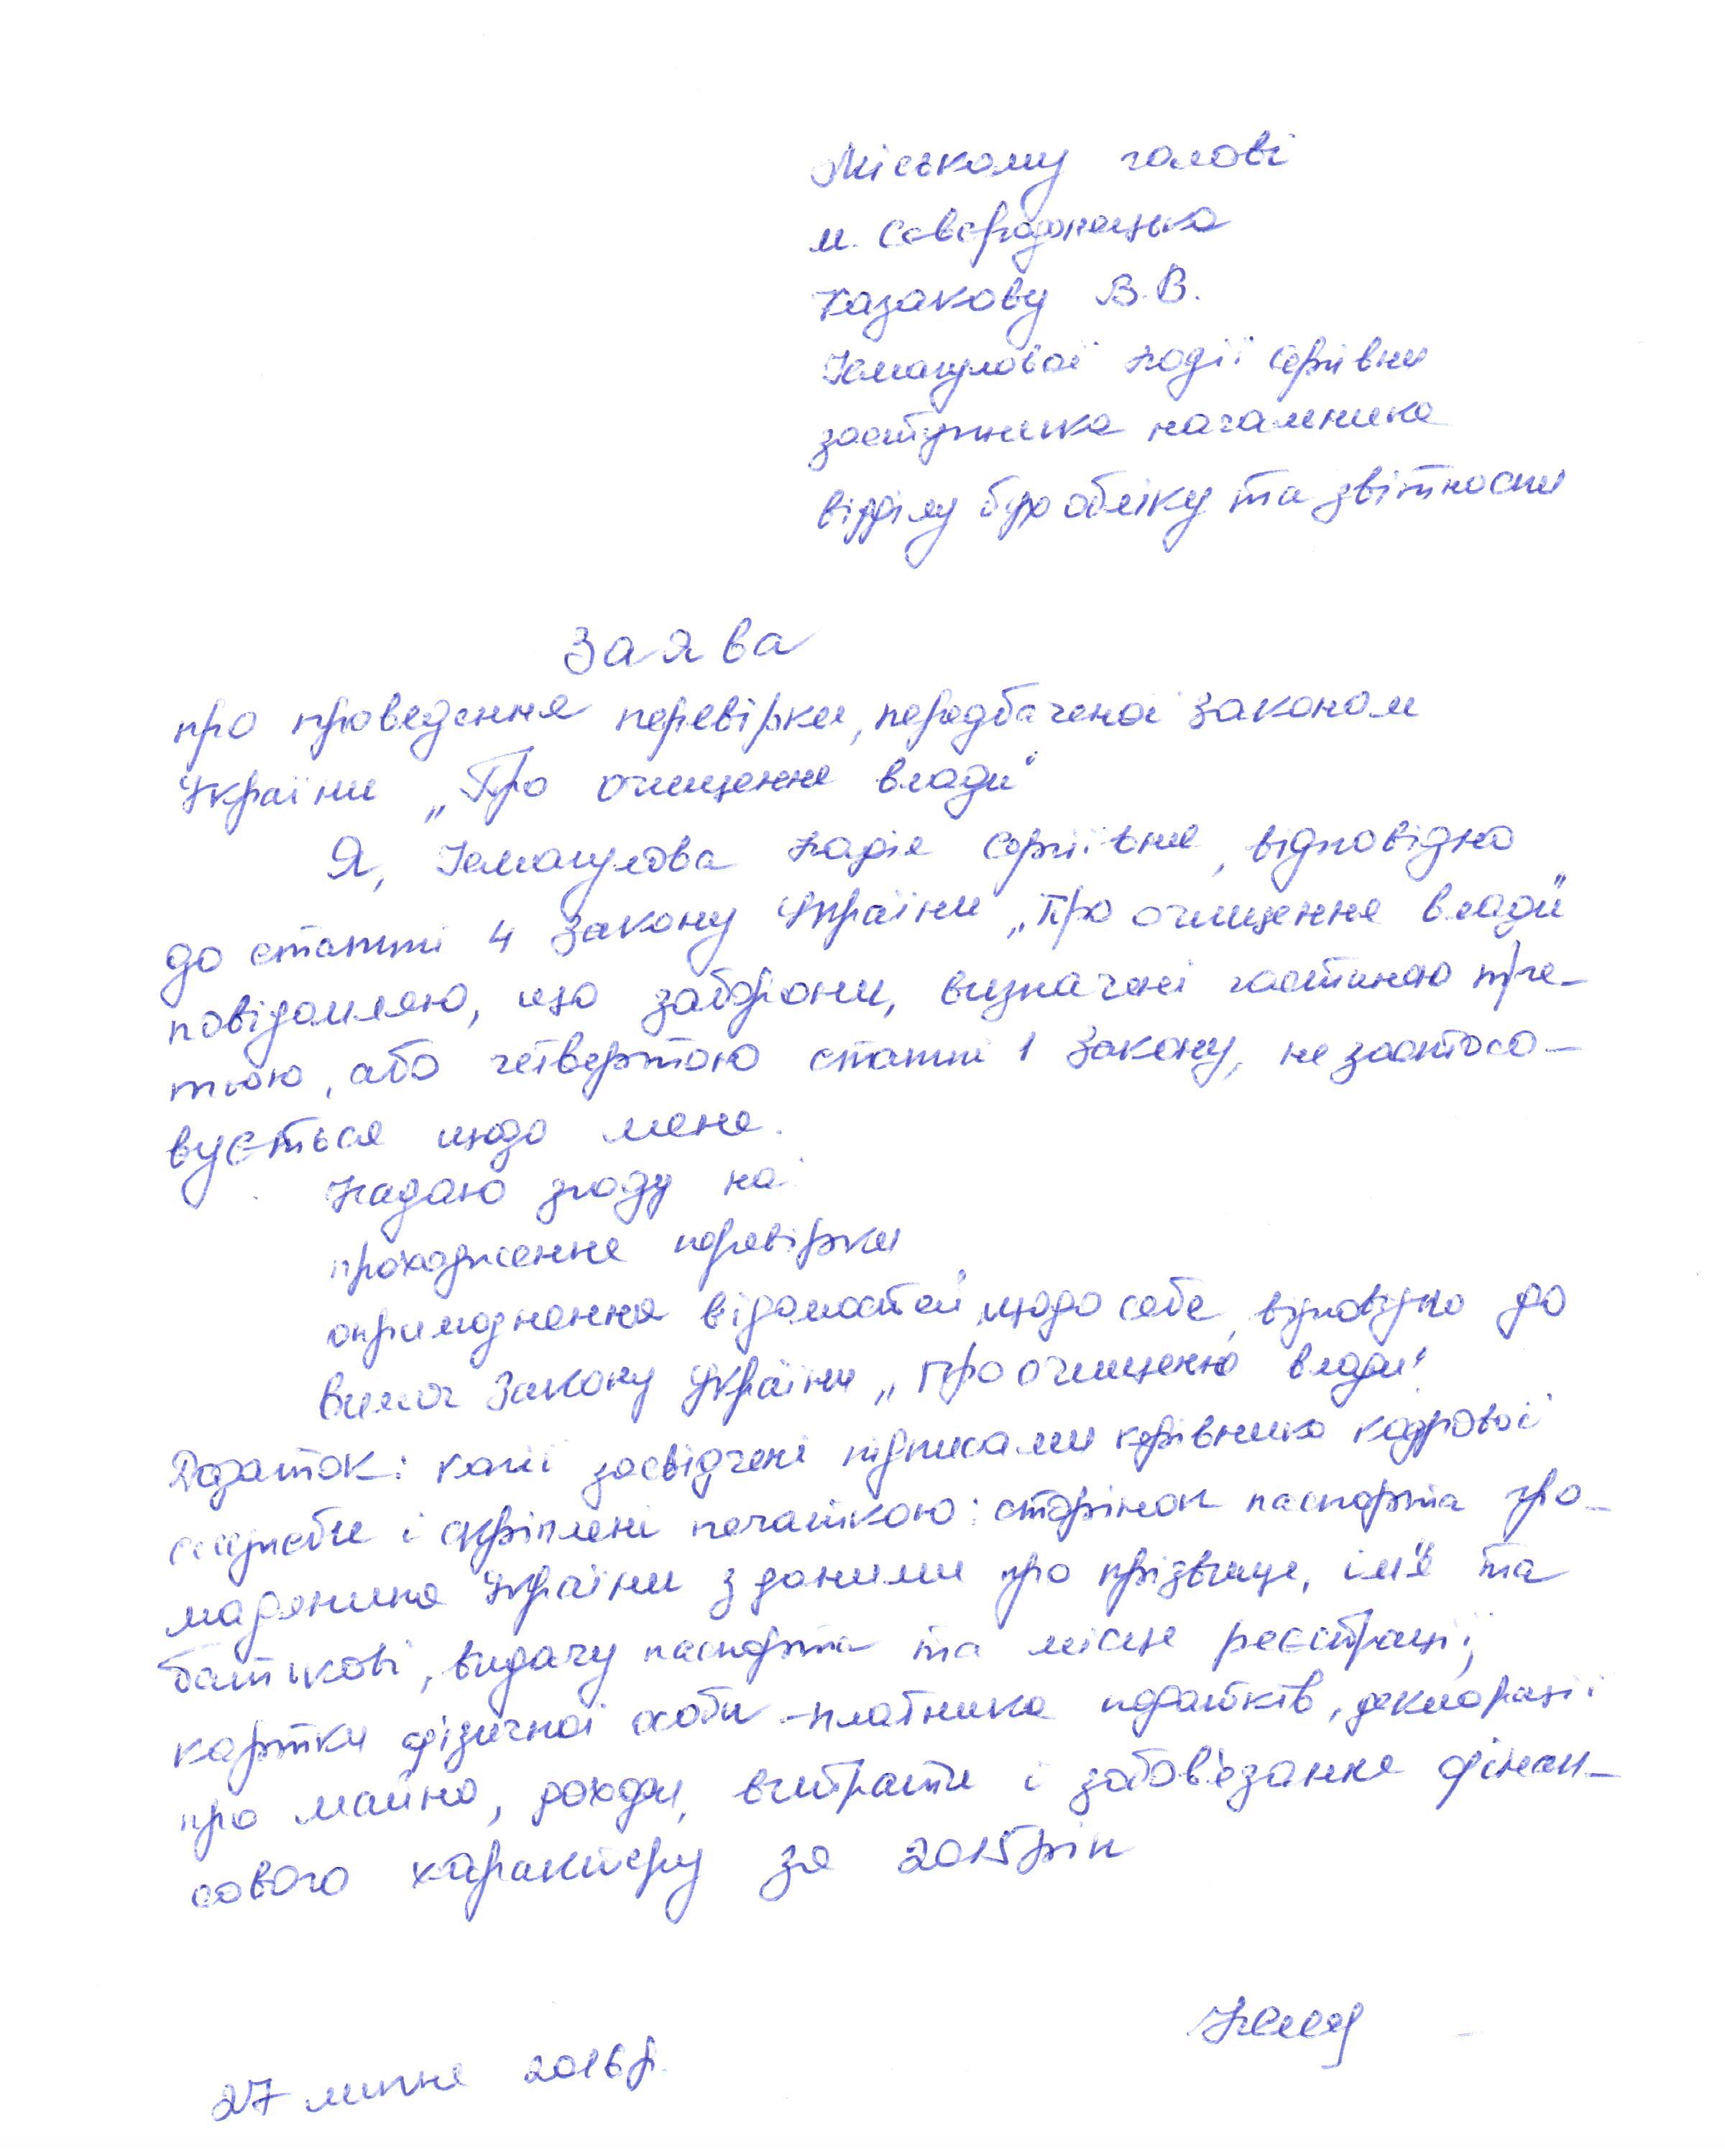 Міському голові
м. Сєвєродонецька
Казакову В.В.
Надії Сергіївни
заступника начальника
відділу бух обліку та звітности
Заява
про проведення перевірки, передбаченої законом
України „Про очищення влади"
Я, Надія Сергіївна, відповідно
до статті 4 Закону України „Про очищення влади"
повідомляю, що заборони, визначені частиною тре-
тьою, або четвертою статті 1 Закону, не застосо-
вується щодо мене.
Надаю згоду на:
проходження перевірки
оприлюднення відомостей щодо себе, відповідно до
вимог Закону України „Про очищеню влади".
Додаток: копії засвідчені підписами керівника кадрової
служби і скріплені печаткою: сторінок паспорта гро-
мадянина України з даними про прізвище, ім'я та
батькові, видачу паспорта та місце реєстрації;
картки фізичної особи -платника податків, декларації
про майно, доходи, витрати і зобов'язання фінан-
сового характеру за 2015рік
27 липня 2016р.